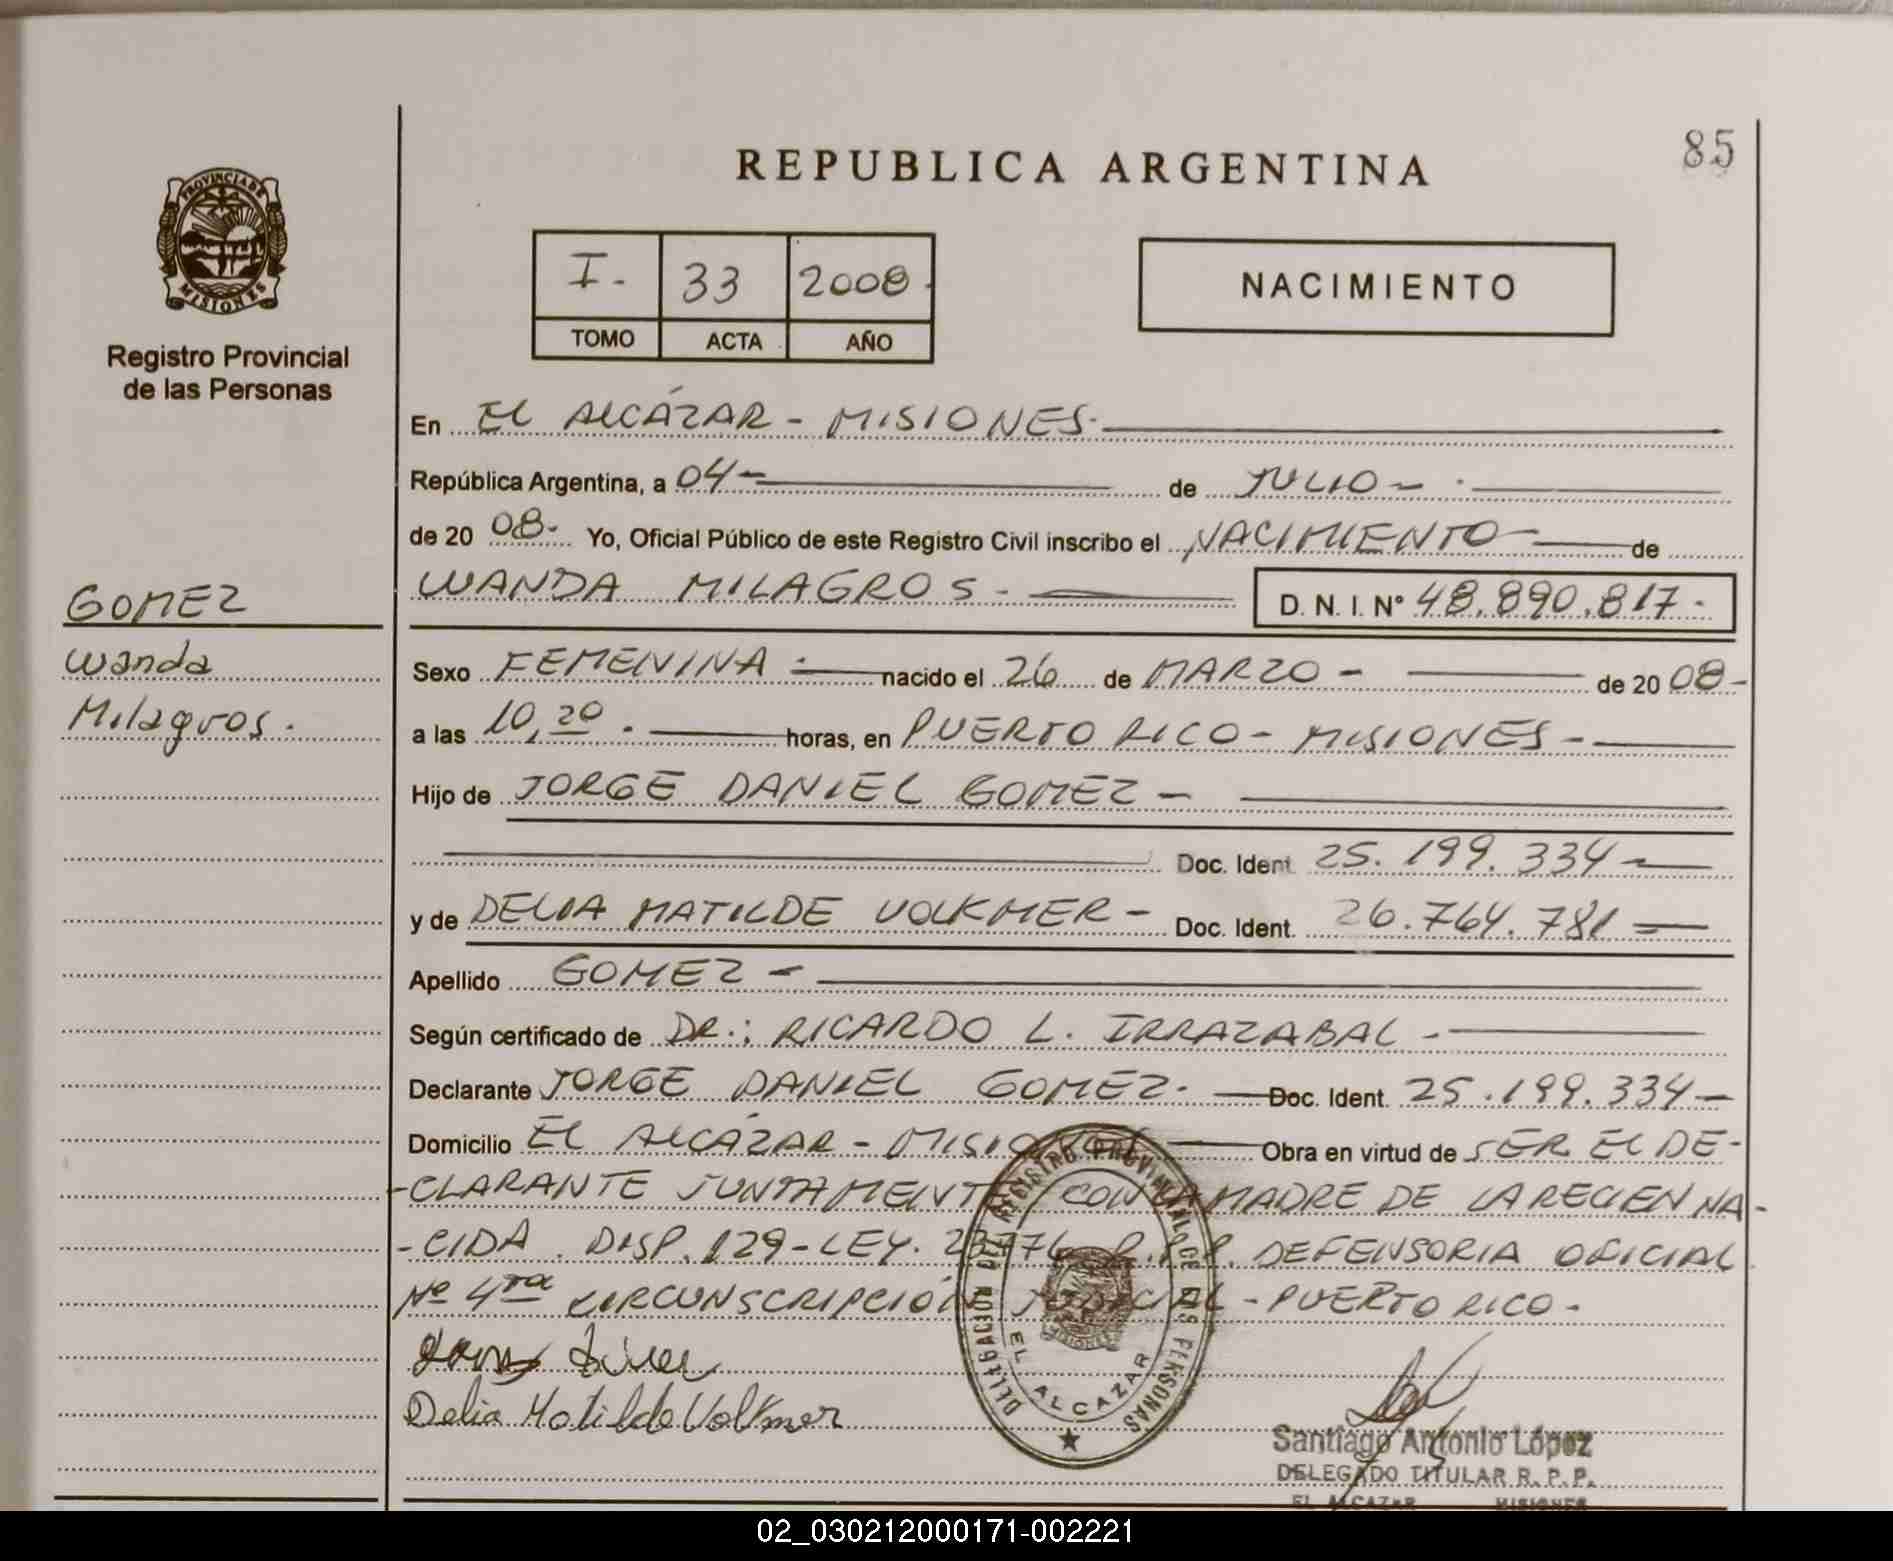 85
REPUBLICA ARGENTINA
PROVINCIA DE
MISIONES
Registro Provincial
de las Personas
I.- 33 2008.
TOMO ACTA AÑO
NACIMIENTO
En EL ALCÁZAR - MISIONES.
República Argentina, a 04 - de JULIO -
de 20 08- Yo, Oficial Público de este Registro Civil inscribo el NACIMIENTO - de
WANDA MILAGROS - D. N. I. Nº 48.890.817-
GOMEZ
Wanda
Milagros.
Sexo FEMENINA - nacido el 26 de MARZO - de 20 08-
a las 10,20. horas, en PUERTO RICO - MISIONES -
Hijo de JORGE DANIEL GOMEZ -
Doc. Ident. 25.199.334 -
y de DELIA MATILDE VOLKMER - Doc. Ident. 26.764.781
Apellido GOMEZ -
Según certificado de DR.: RICARDO L. IRRAZABAL -
Declarante JORGE DANIEL GOMEZ- Doc. Ident. 25.199.334-
Domicilio EL ALCÁZAR - MISIONES Obra en virtud de SER EL DE-
-CLARANTE JUNTAMENTE CON LA MADRE DE LA RECIEN NA-
-CIDA. DISP. 129-LEY. DEFENSORIA OFICIAL
Nº 4ta CIRCUNSCRIPCIÓN JUDICIAL - PUERTO RICO -
Delia Matilde Volkmer
DELEGACION DEL REGISTRO PROVINCIAL DE LAS PERSONAS
EL ALCAZAR
MISIONES
Santiago Antonio López
DELEGADO TITULAR R. P. P.
EL ALCAZAR MISIONES
02_030212000171-002221